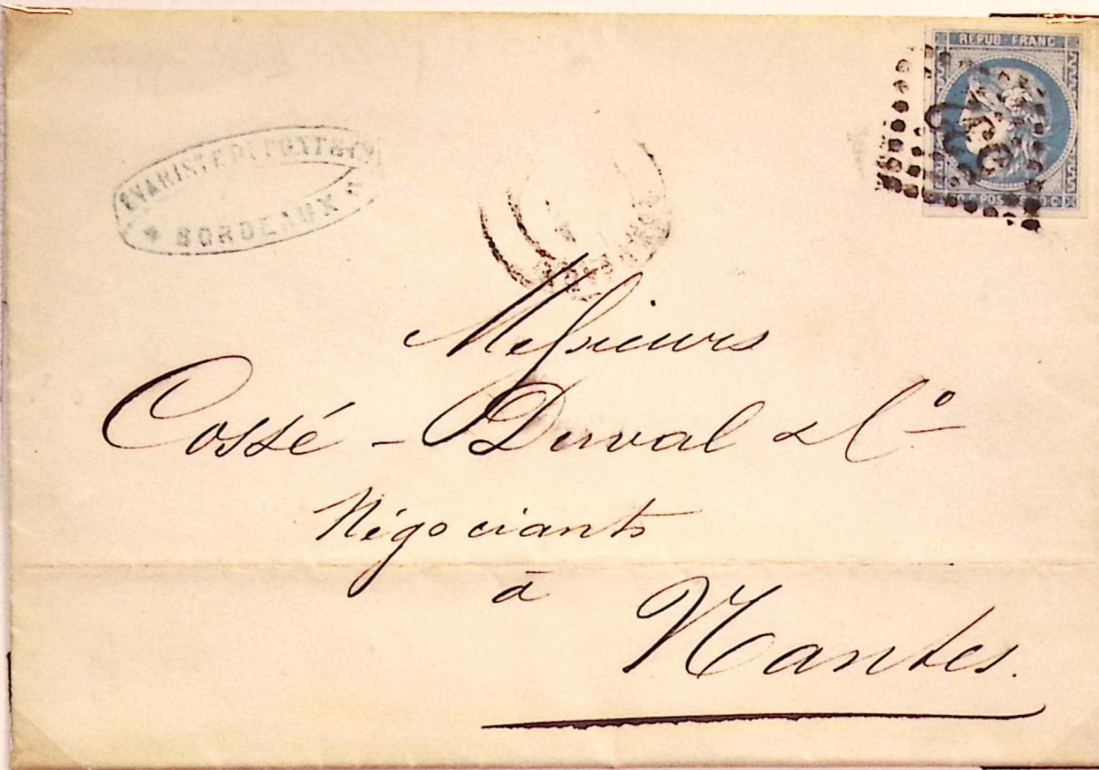 REPUB·FRANC
EVARISTE DUPONT & Cie
BORDEAUX
POSTES
Messieurs
Cossé - Duval & Co
Négociants
à
Nantes.